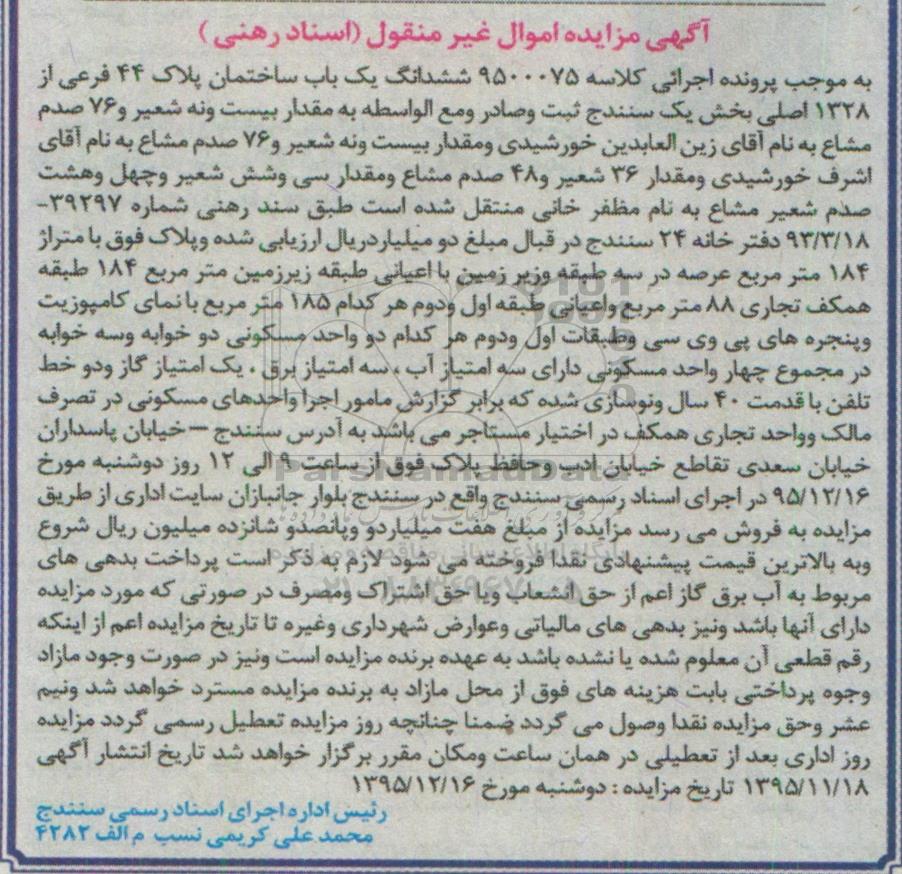 آگهی مزایده اموال غیر منقول (اسناد رهنی)
به موجب پرونده اجرائی کلاسه ۹۵۰۰۰۷۵ ششدانگ یک باب ساختمان پلاک ۴۴ فرعی از
۱۳۲۸ اصلی بخش یک سنندج ثبت وصادر ومع الواسطه به مقدار بیست ونه شعیر و۷۶ صدم
مشاع به نام آقای زین العابدین خورشیدی ومقدار بیست ونه شعیر و۷۶ صدم مشاع به نام آقای
اشرف خورشیدی ومقدار ۳۶ شعیر و۴۸ صدم مشاع ومقدار سی وشش شعیر وچهل وهشت
صدم شعیر مشاع به نام مظفر خانی منتقل شده است طبق سند رهنی شماره ۳۹۲۹۷-
۹۳/۳/۱۸ دفتر خانه ۲۴ سنندج در قبال مبلغ دو میلیاردریال ارزیابی شده وپلاک فوق با متراژ
۱۸۴ متر مربع عرصه در سه طبقه وزیر زمین با اعیانی طبقه زیرزمین متر مربع ۱۸۴ طبقه
همکف تجاری ۸۸ متر مربع واعیانی طبقه اول ودوم هر کدام ۱۸۵ متر مربع با نمای کامپوزیت
وپنجره های پی وی سی وطبقات اول ودوم هر کدام دو واحد مسکونی دو خوابه وسه خوابه
در مجموع چهار واحد مسکونی دارای سه امتیاز آب ، سه امتیاز برق ، یک امتیاز گاز ودو خط
تلفن با قدمت ۴۰ سال ونوسازی شده که برابر گزارش مامور اجرا واحدهای مسکونی در تصرف
مالک وواحد تجاری همکف در اختیار مستاجر می باشد به آدرس سنندج – خیابان پاسداران
خیابان سعدی تقاطع خیابان ادب وحافظ پلاک فوق از ساعت ۹ الی ۱۲ روز دوشنبه مورخ
۹۵/۱۲/۱۶ در اجرای اسناد رسمی سنندج واقع در سنندج بلوار جانبازان سایت اداری از طریق
مزایده به فروش می رسد مزایده از مبلغ هفت میلیاردو وپانصدو شانزده میلیون ریال شروع
وبه بالاترین قیمت پیشنهادی نقدا فروخته می شود لازم به ذکر است پرداخت بدهی های
مربوط به آب برق گاز اعم از حق انشعاب ویا حق اشتراک ومصرف در صورتی که مورد مزایده
دارای آنها باشد ونیز بدهی های مالیاتی وعوارض شهرداری وغیره تا تاریخ مزایده اعم از اینکه
رقم قطعی آن معلوم شده یا نشده باشد به عهده برنده مزایده است ونیز در صورت وجود مازاد
وجوه پرداختی بابت هزینه های فوق از محل مازاد به برنده مزایده مسترد خواهد شد ونیم
عشر وحق مزایده نقدا وصول می گردد ضمنا چنانچه روز مزایده تعطیل رسمی گردد مزایده
روز اداری بعد از تعطیلی در همان ساعت ومکان مقرر برگزار خواهد شد تاریخ انتشار آگهی
۱۳۹۵/۱۱/۱۸ تاریخ مزایده : دوشنبه مورخ ۱۳۹۵/۱۲/۱۶
رئیس اداره اجرای اسناد رسمی سنندج
محمد علی کریمی نسب م الف ۴۲۸۲
ParsNamadData